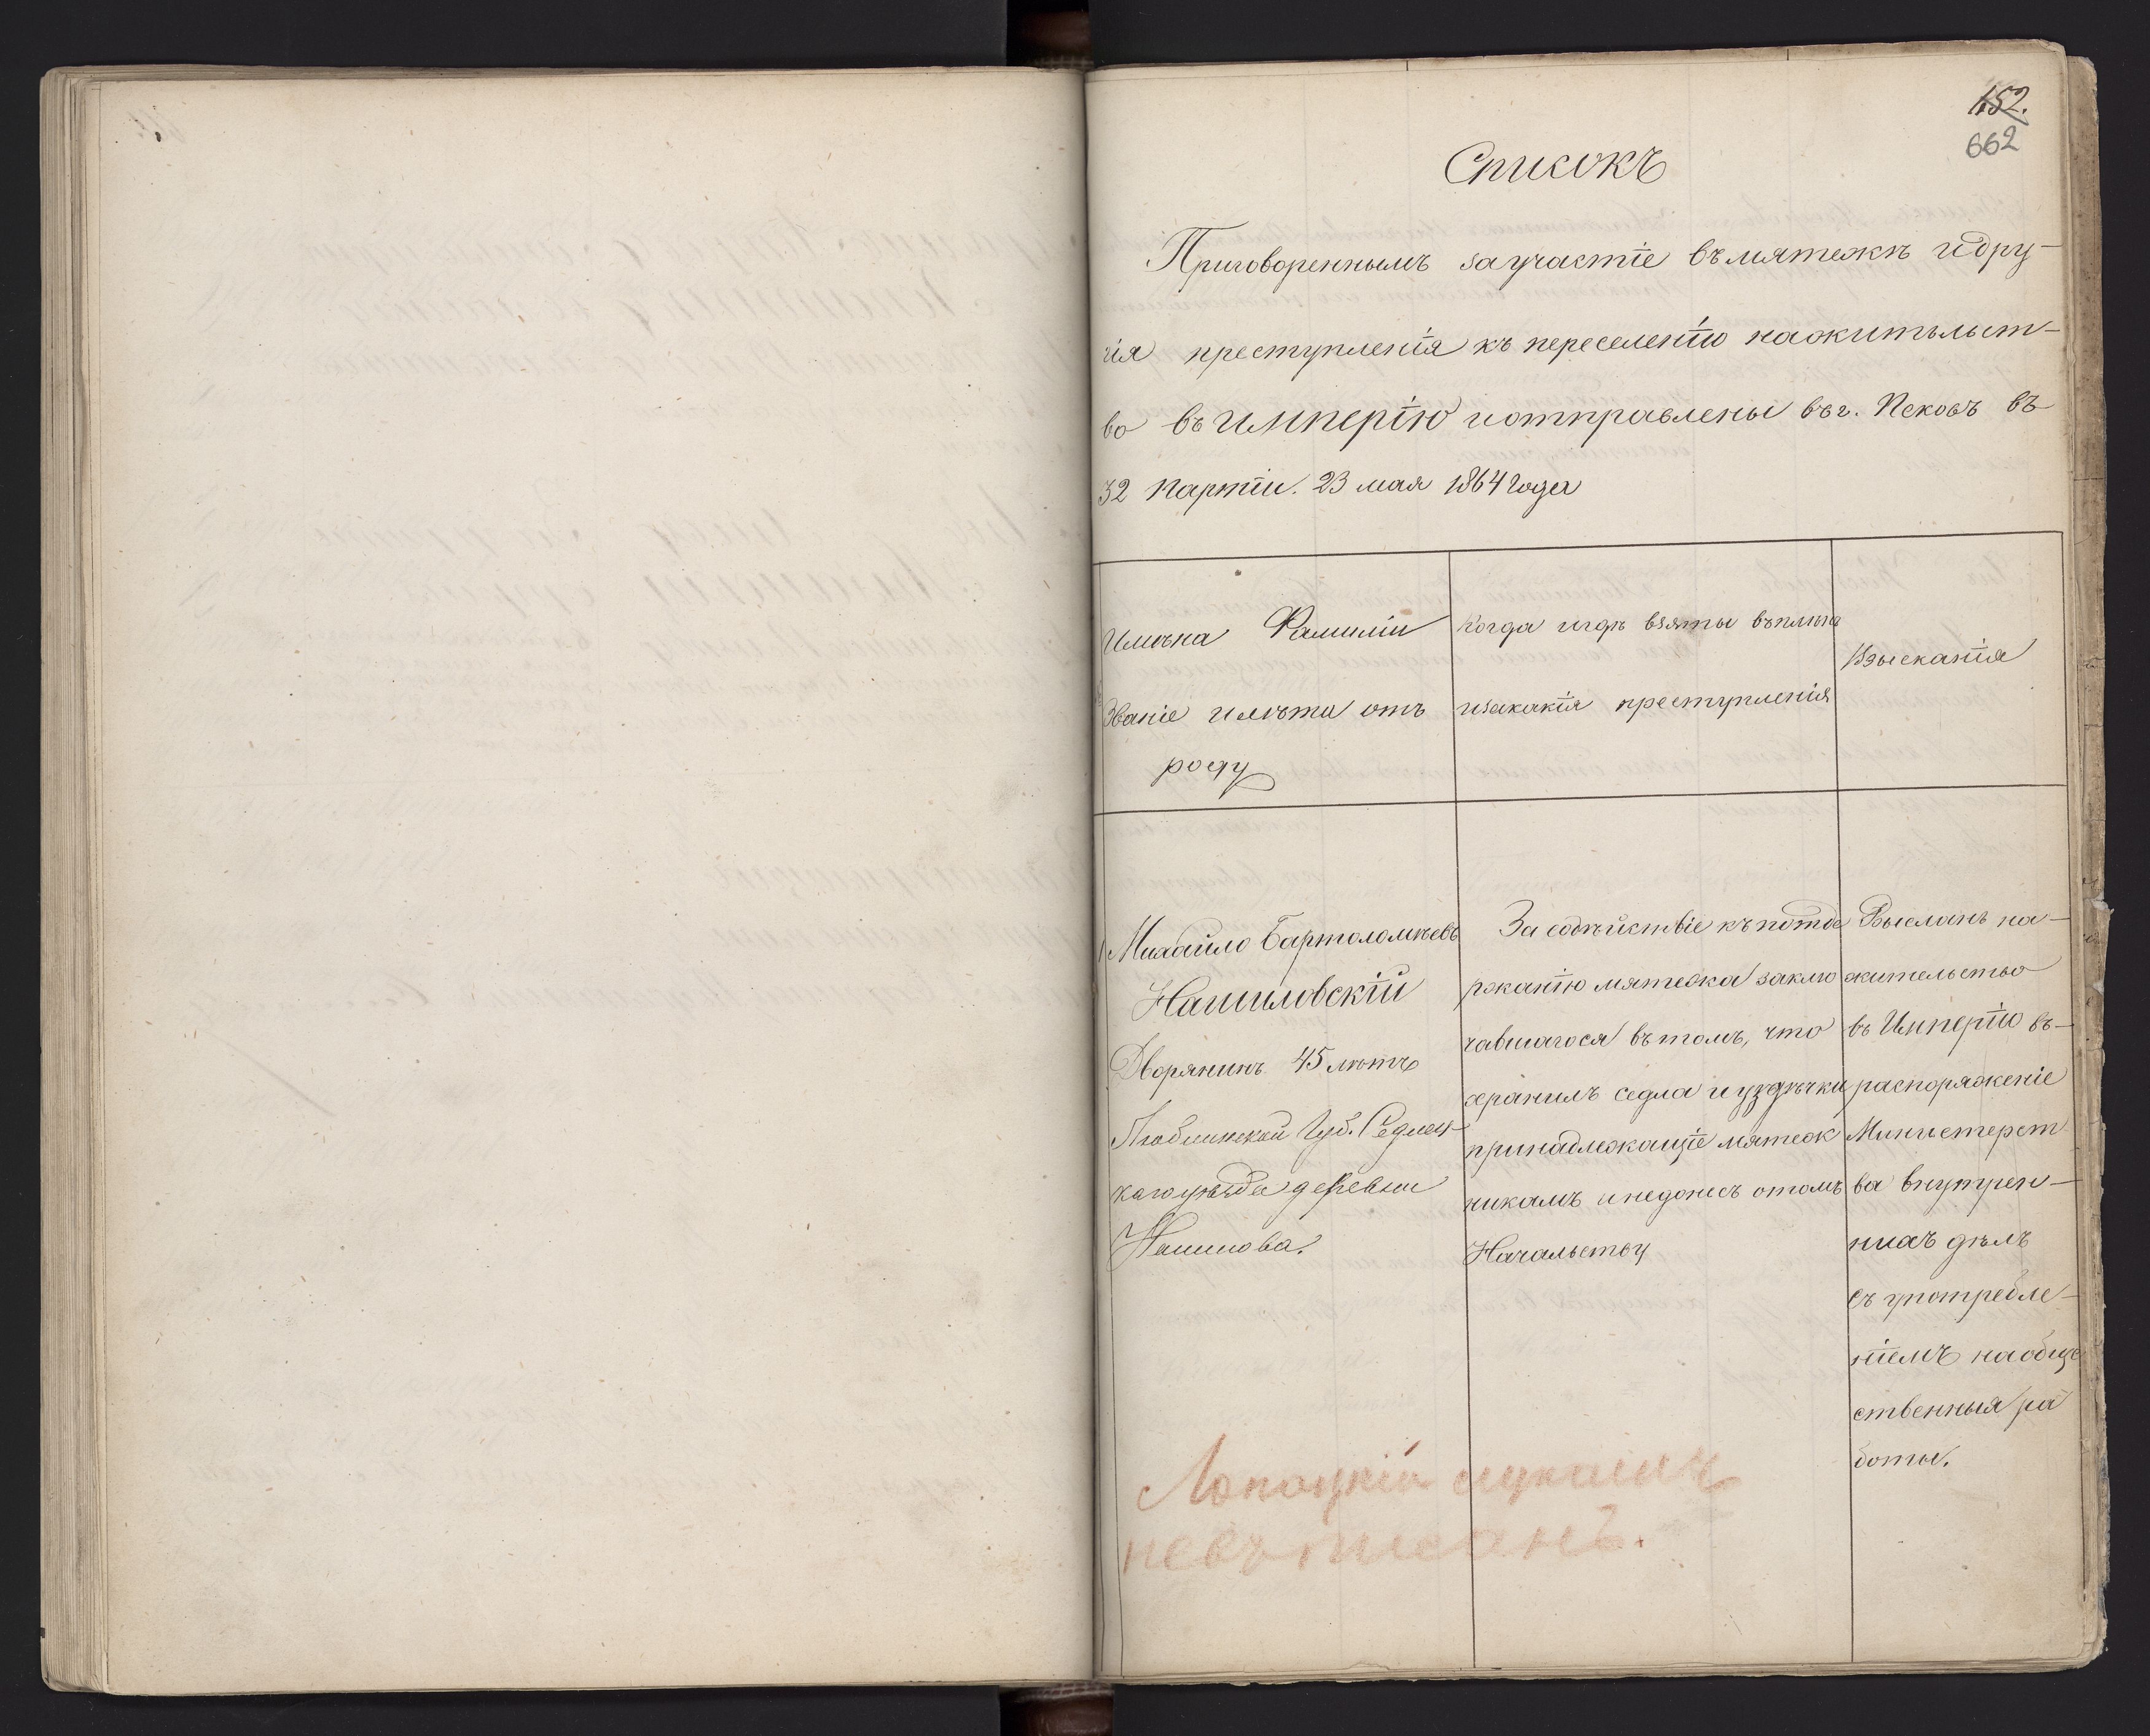 152.
662
Списокъ
Приговореннымъ за участіе въ мятежѣ и дру-
гія преступленія къ переселенію на житѣльст-
во въ Имперію и отправлены въ г. Псковъ въ
32 партіи. 23 мая 1864 года
Имѣна Фамиліи
Званіе и лѣта отъ
роду
Когда и гдѣ взяты въ плѣнъ
и за какія преступленія
Взысканія
Михайло Бартоломѣевъ
Нашиловскій
Дворянинъ 45 лѣтъ
Люблинской Губ. Седлец-
каго уѣзда деревни
За содѣйствіе къ подде
ржанію мятежа заклю
чавшагося въ томъ, что
хранилъ седла и уздѣчки
принадлежащіе мятеж
никамъ и недонесъ о томъ
Начальству
Высланъ на-
жительство
въ Имперію въ-
распоряженіе
Министерст
ва внутрен-
нихъ дѣлъ
съ употребле-
ніемъ на обще
ственныя ра
боты.